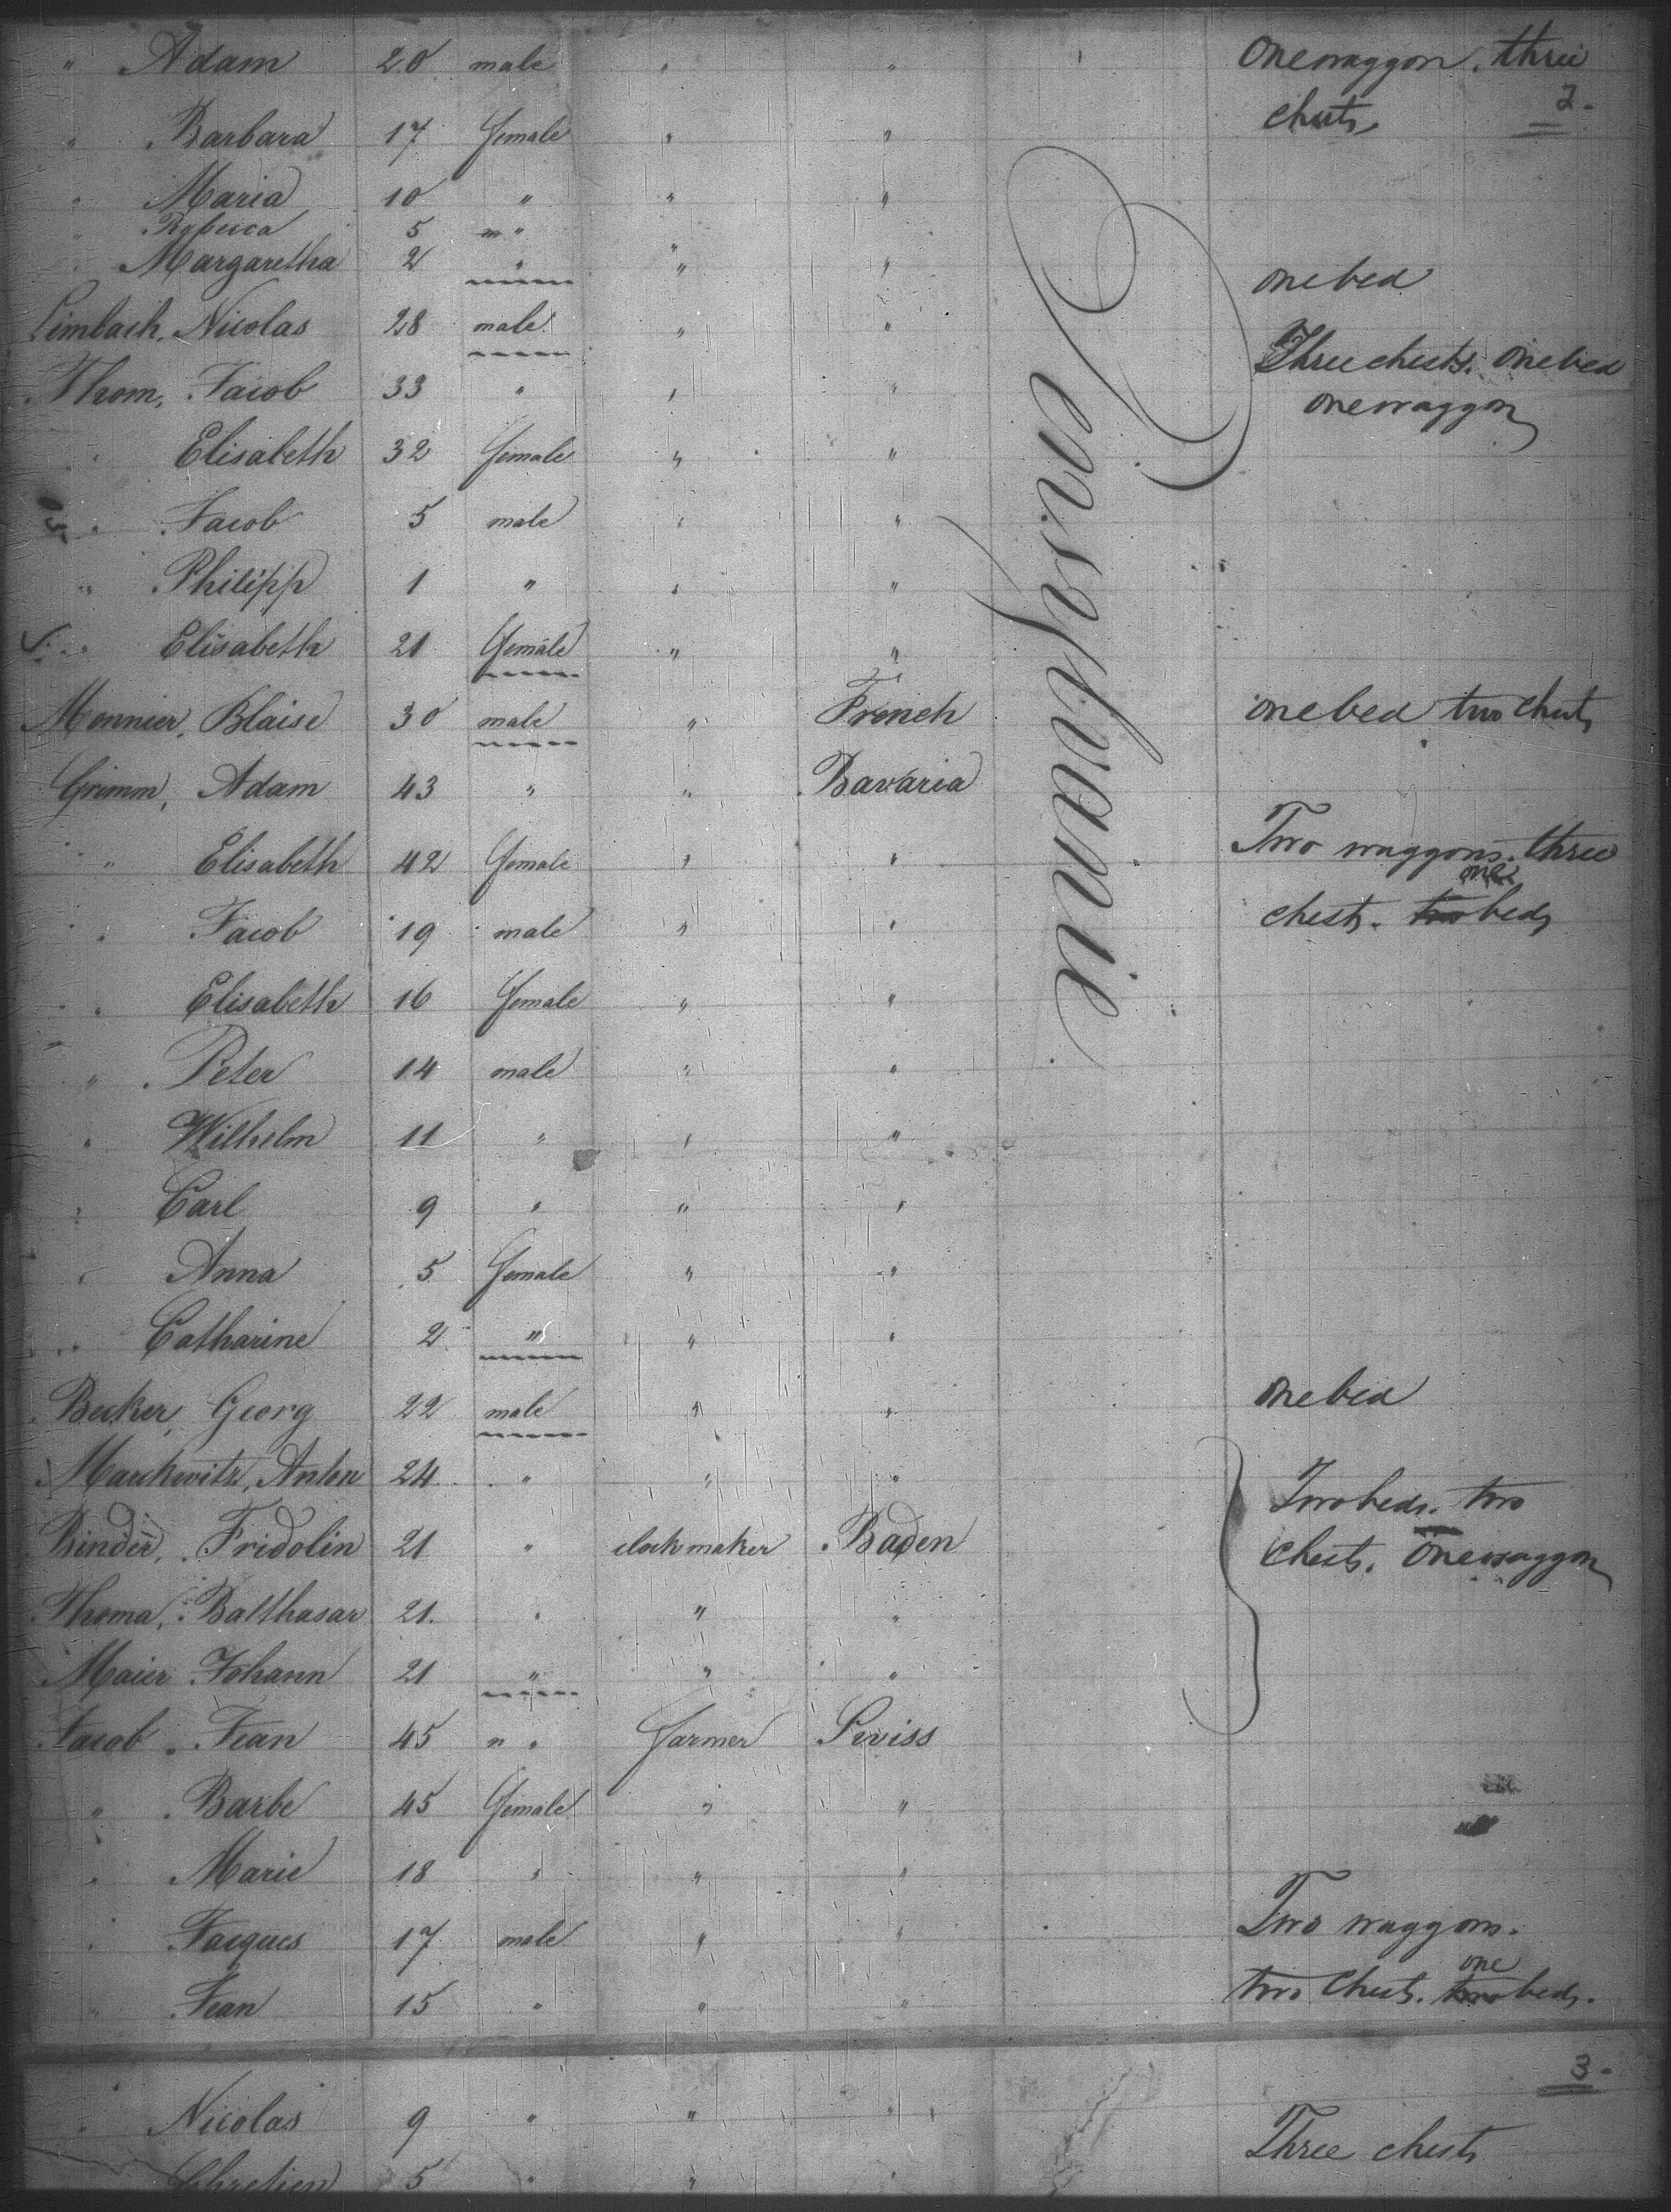 " Adam 20 male " " One waggon. three
chests 2.
" Barbara 17 female " "
" Maria 10 " " "
" Rebecca 5 " "
" Margaretha 2 " " "
one bed
Limbach, Nicolas 28 male " "
Three chests. One bed
Thom, Jacob 33 " " "
one waggon
" Elisabeth 32 female " "
" Jacob 5 male " "
" Philipp 1 " " "
" Elisabeth 21 female " "
Monnier, Blaise 30 male " French one bed two chests
Grimm, Adam 43 " " Bavaria
Two waggons. three
" Elisabeth 42 female " "
one
chests. two beds
" Jacob 19 male " "
" Elisabeth 16 female " "
" Peter 14 male " "
" Wilhelm 11 " " "
" Carl 9 " " "
" Anna 5 female " "
" Catharine 2 " " "
Becker, Georg 22 male " " one bed
Marckwitz, Anton 24 " " "
Two beds. two
Binder, Fridolin 21 " clockmaker Baden chests. One waggon
Thoma, Balthasar 21. " " "
Maier Johann 21 " " "
Jacob Jean 45 " farmer Swiss
" Barbe 45 female " "
" Marie 18 " " "
" Jacques 17 male " " Two waggons.
one
" Jean 15 " " " two chests. two beds.
Pensylvanie
3.
" Nicolas 9 " " "
Three chests
" Chretien 5 " " "